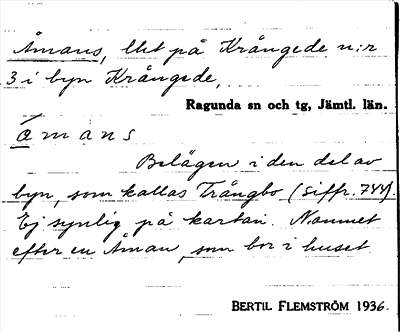 Åmans, lht på Krångede n:r
3 i byn Krångede,
Ragunda sn och tg, Jämtl. län.
o᷄mans
Belägen i den del av
byn, som kallas Trångbo (siffr. 744).
Ej synlig på kartan. Namnet
efter en Åman, som bor i huset.
BERTIL FLEMSTRÖM 1936.